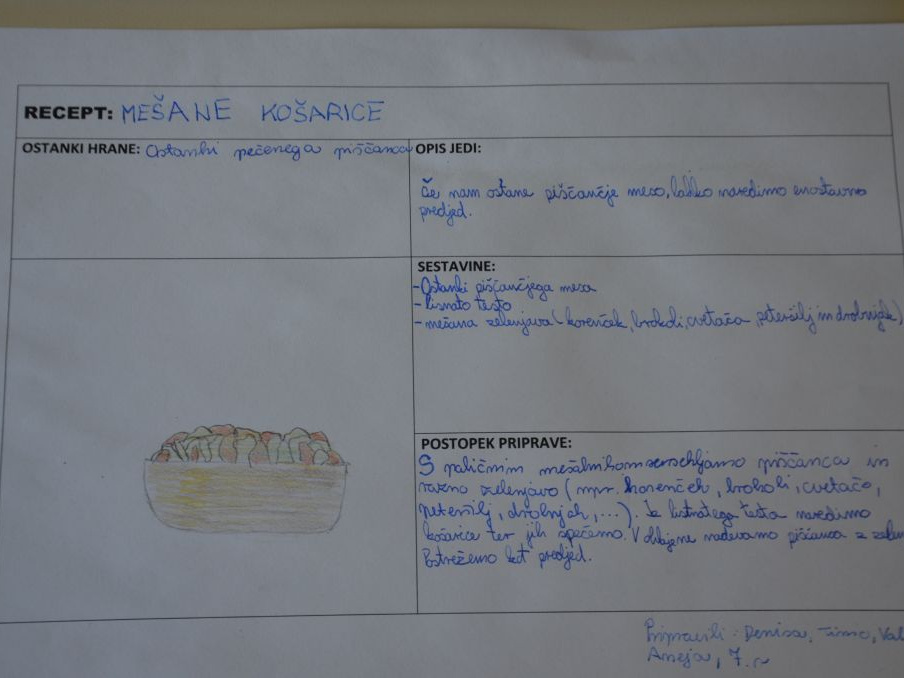 RECEPT: MEŠANE KOŠARICE
OSTANKI HRANE: Ostanki pečenega piščanca
OPIS JEDI:
Če nam ostane piščančje meso, lahko naredimo enostavno
predjed.
SESTAVINE:
- Ostanki piščančjega mesa
- Listnato testo
- mešana zelenjava (korenček, brokoli, cvetača, peteršilj in drobnjak)
POSTOPEK PRIPRAVE:
S paličnim mešalnikom sesekljamo piščanca in
razno zelenjavo (npr. korenček, brokoli, cvetačo,
peteršilj, drobnjak, ...). Iz listnatega testa naredimo
košarice ter jih spečemo. V ohlajene nadevamo piščanca z
Postrežemo kot predjed.
Pripravili: Denisa, Timo,
Aneja, 7.